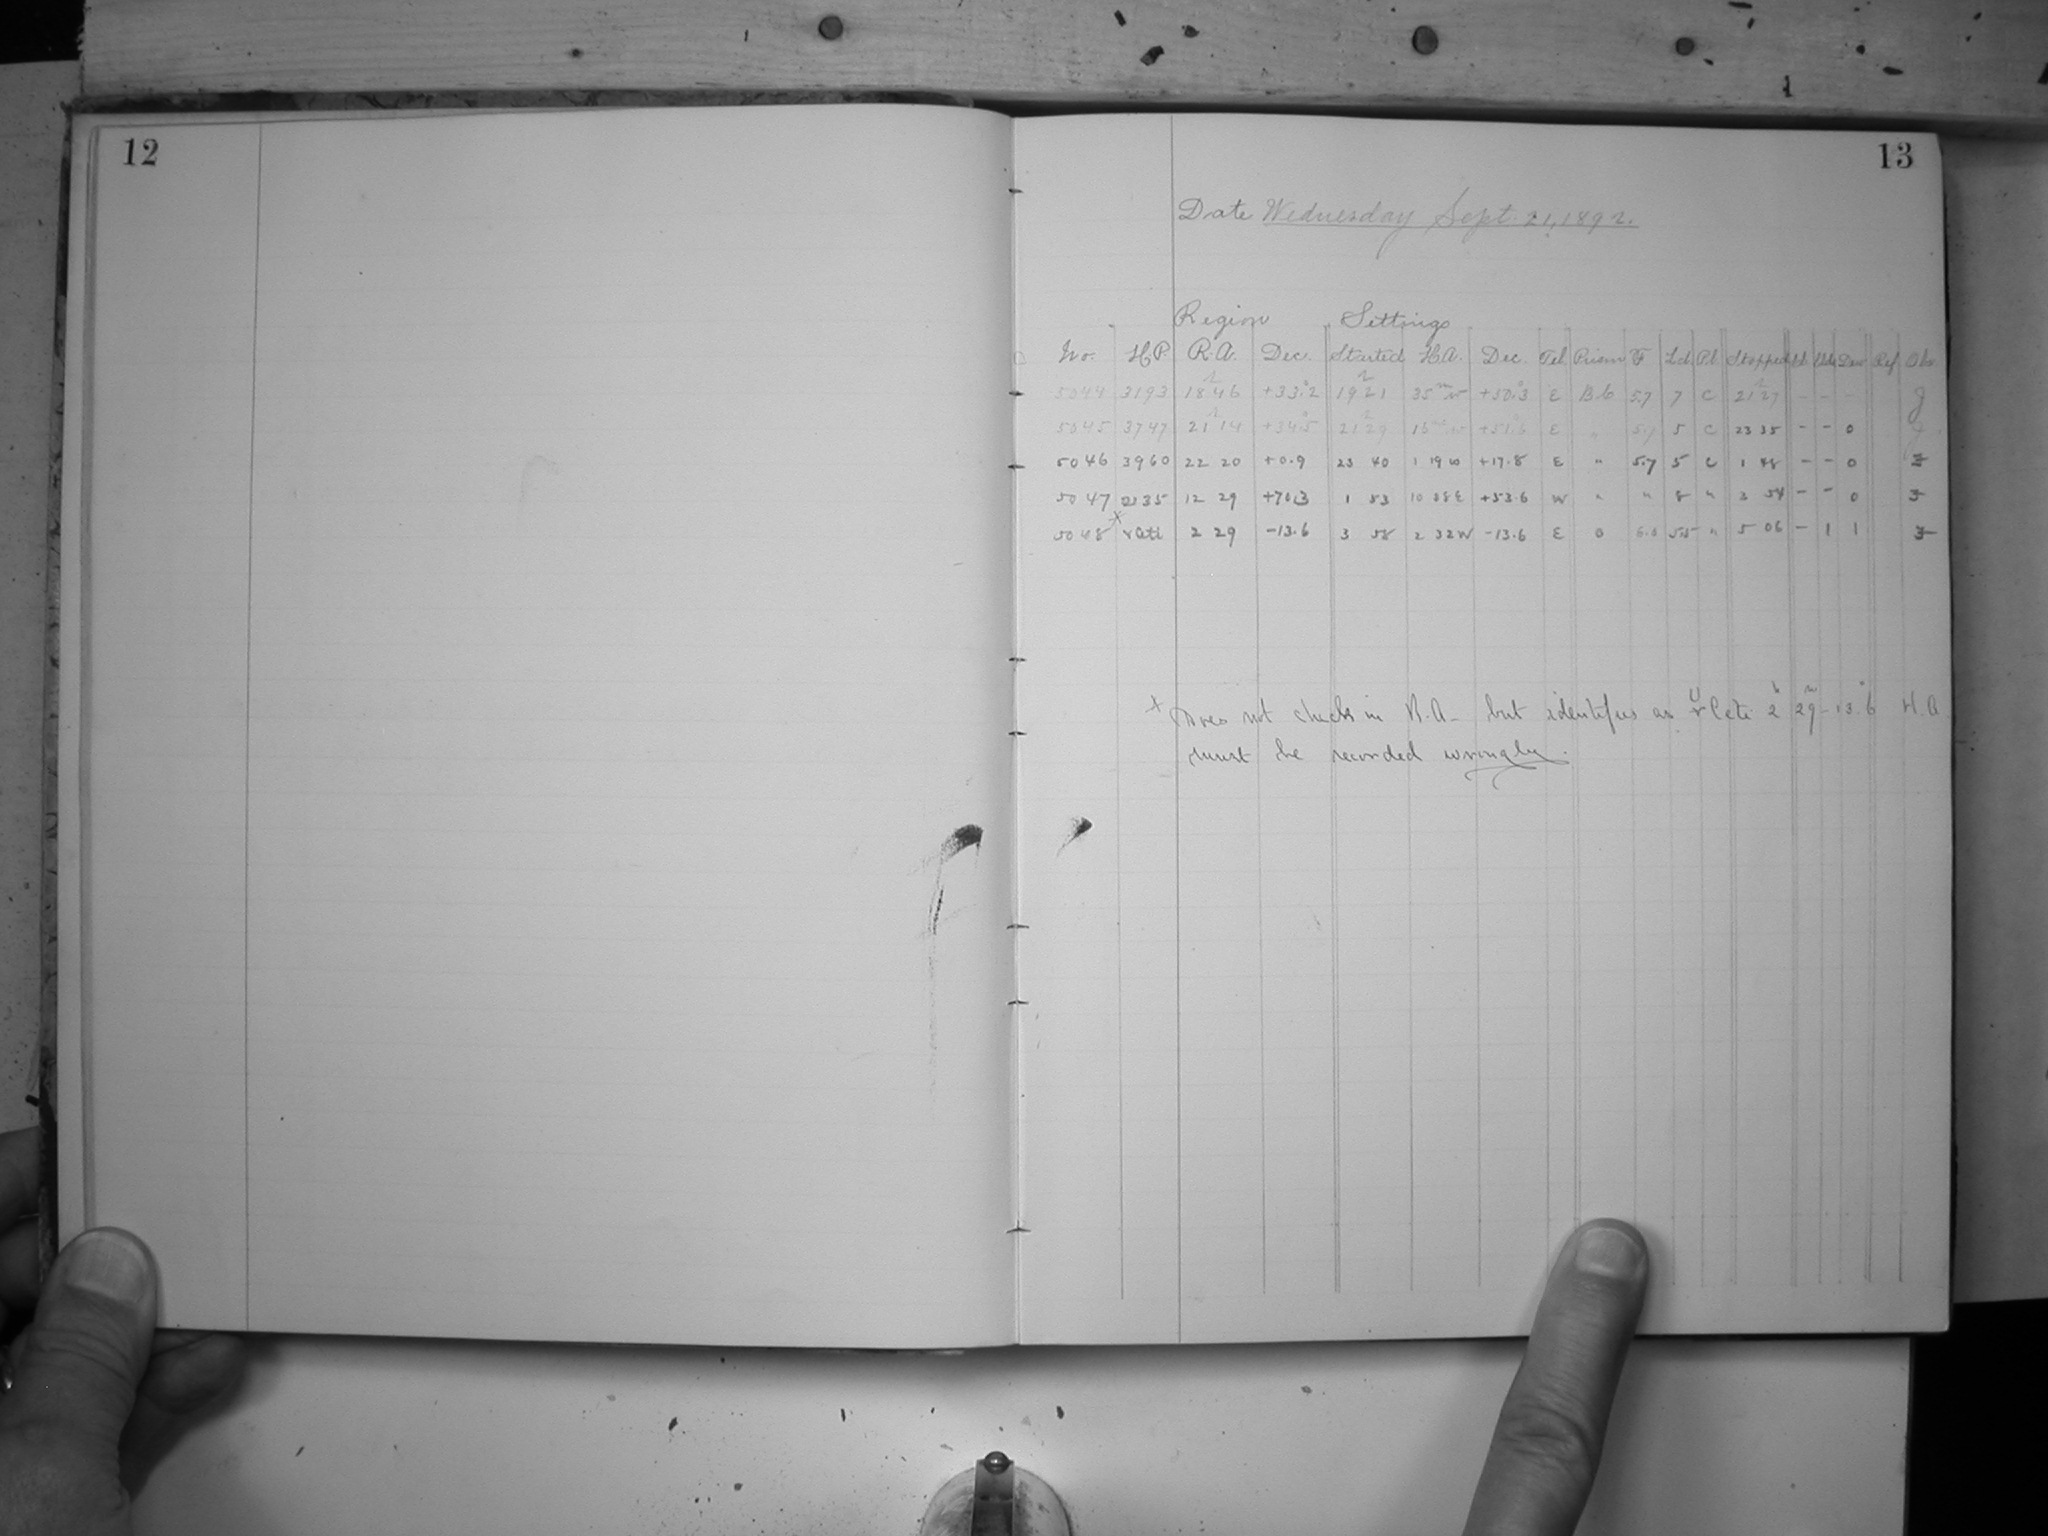 12
13
Date Wednesday Sept. 21, 1892.
Region Settings
No. H.P. R.A. Dec. Started H.A. Dec. Tel. Prism F Ld Pl. Stopped Dew Ref. Obs.
5044 3193 18h 46 +33°.2 19h 21 35m W +50°.3 E B.C 5.7 7 C 21h 27 - - - J
5045 3747 21h 14 +34°.5 21h 29 15m W +51°.6 E " 5.7 5 C 23 35 - - 0
5046 3960 22 20 +0.9 23 40 1 19 W +17.8 E " 5.7 5 C 1 48 - - 0 J
5047 2135 12 29 +70.3 1 53 10 38 E +53.6 W " " 8 " 3 54 - - 0 J
5048 x r Ceti 2 29 -13.6 3 58 2 32 W -13.6 E 0 6.0 5.5 " 5 06 - 1 1 J
x Does not check in R.A. - but identifies as U r Ceti 2h 29m -13°.6 H.A.
must be recorded wrongly.